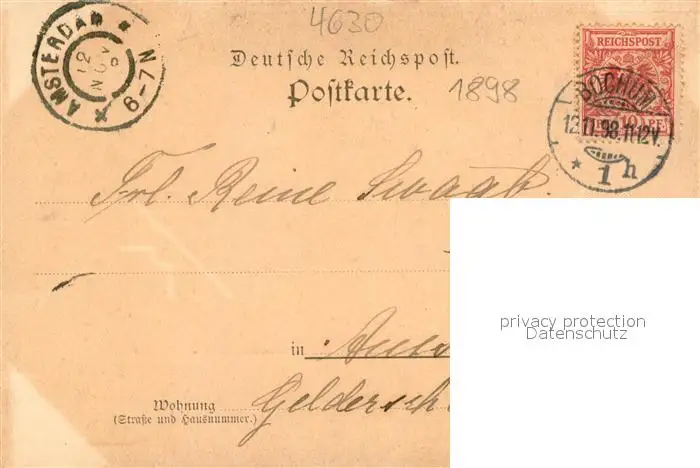 4630
AMSTERDAM
12 NOV
6-7N
Deutsche Reichspost.
Postkarte.
1898
REICHSPOST
10 PF
BOCHUM
12.11.98.11-12V.
* 1 h
Frl. Reine
in Ams
Wohnung
(Straße und Hausnummer.)
Geldersch
privacy protection
Datenschutz